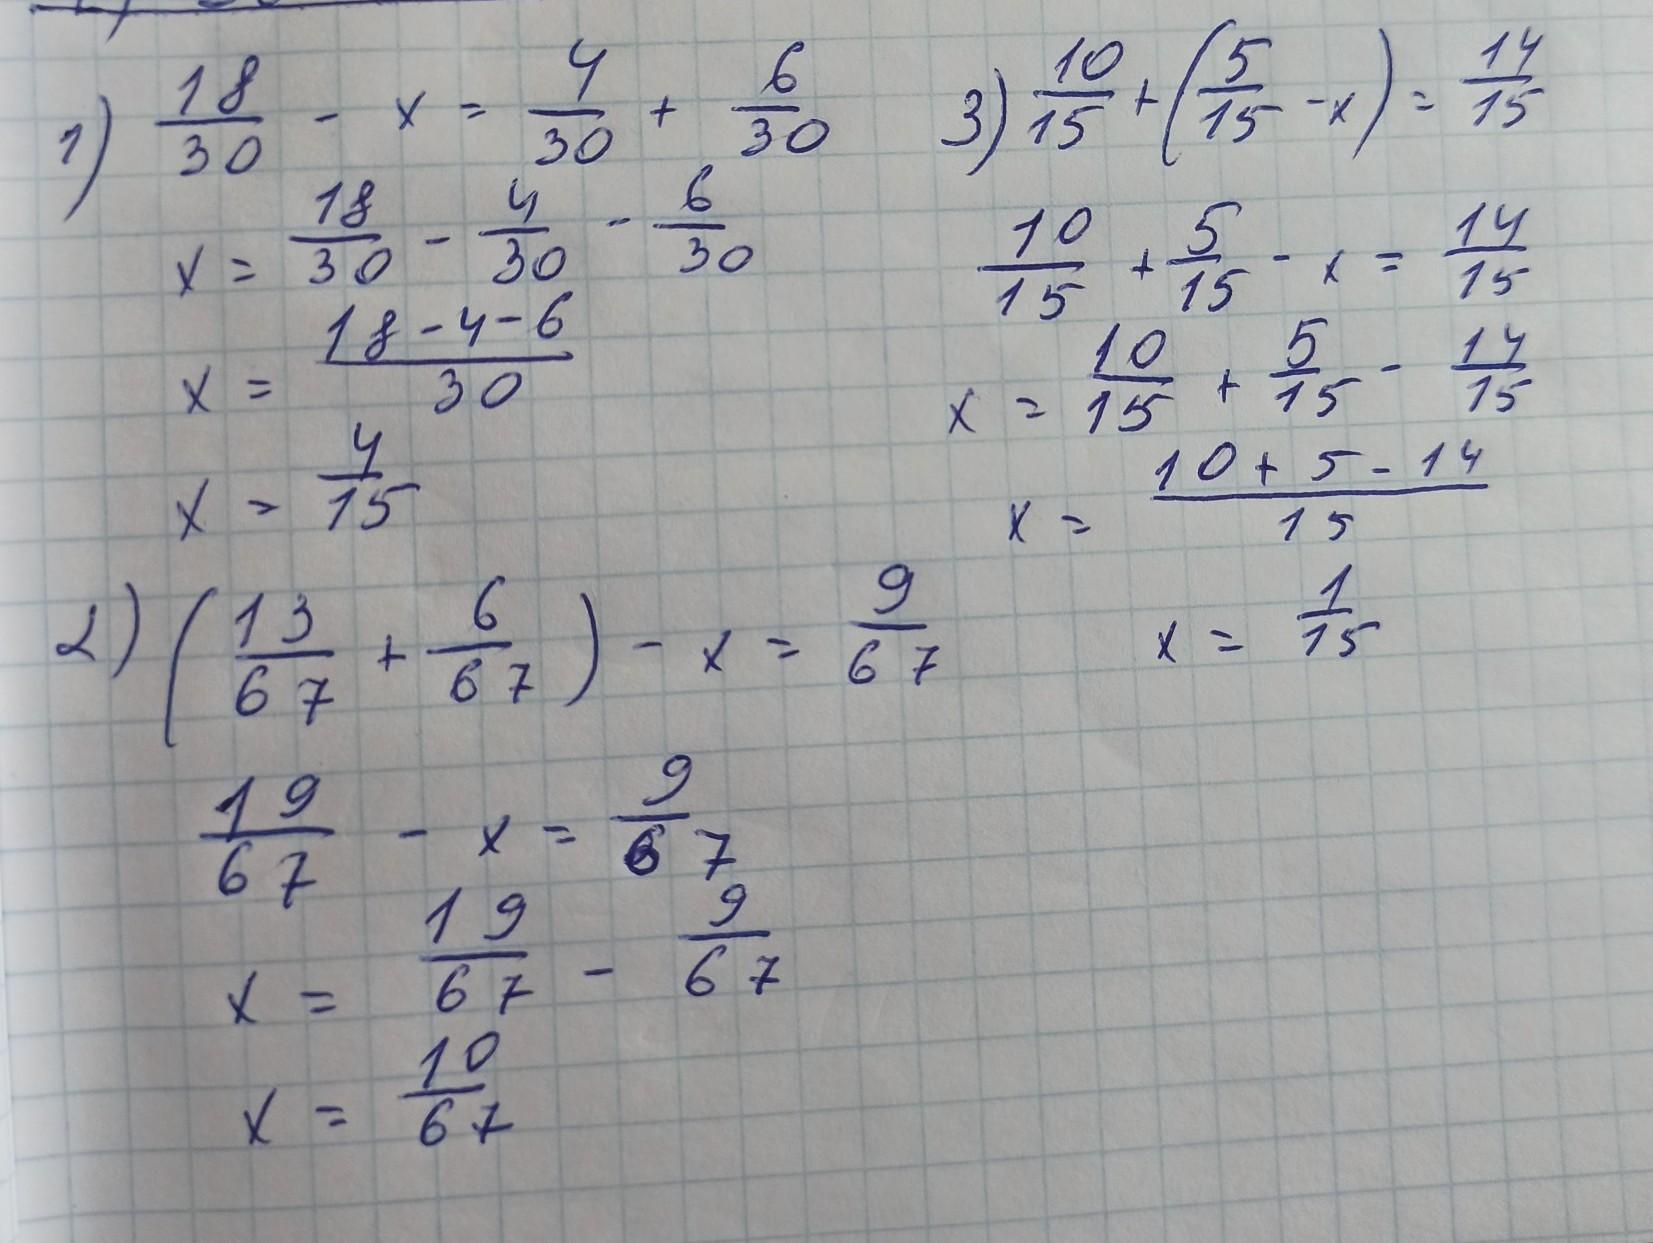 1) 18/30 - x = 4/30 + 6/30
x = 18/30 - 4/30 - 6/30
x = (18-4-6)/30
x = 4/15
2) (13/67 + 6/67) - x = 9/67
19/67 - x = 9/67
x = 19/67 - 9/67
x = 10/67
3) 10/15 + (5/15 - x) = 14/15
10/15 + 5/15 - x = 14/15
x = 10/15 + 5/15 - 14/15
x = (10 + 5 - 14)/15
x = 1/15